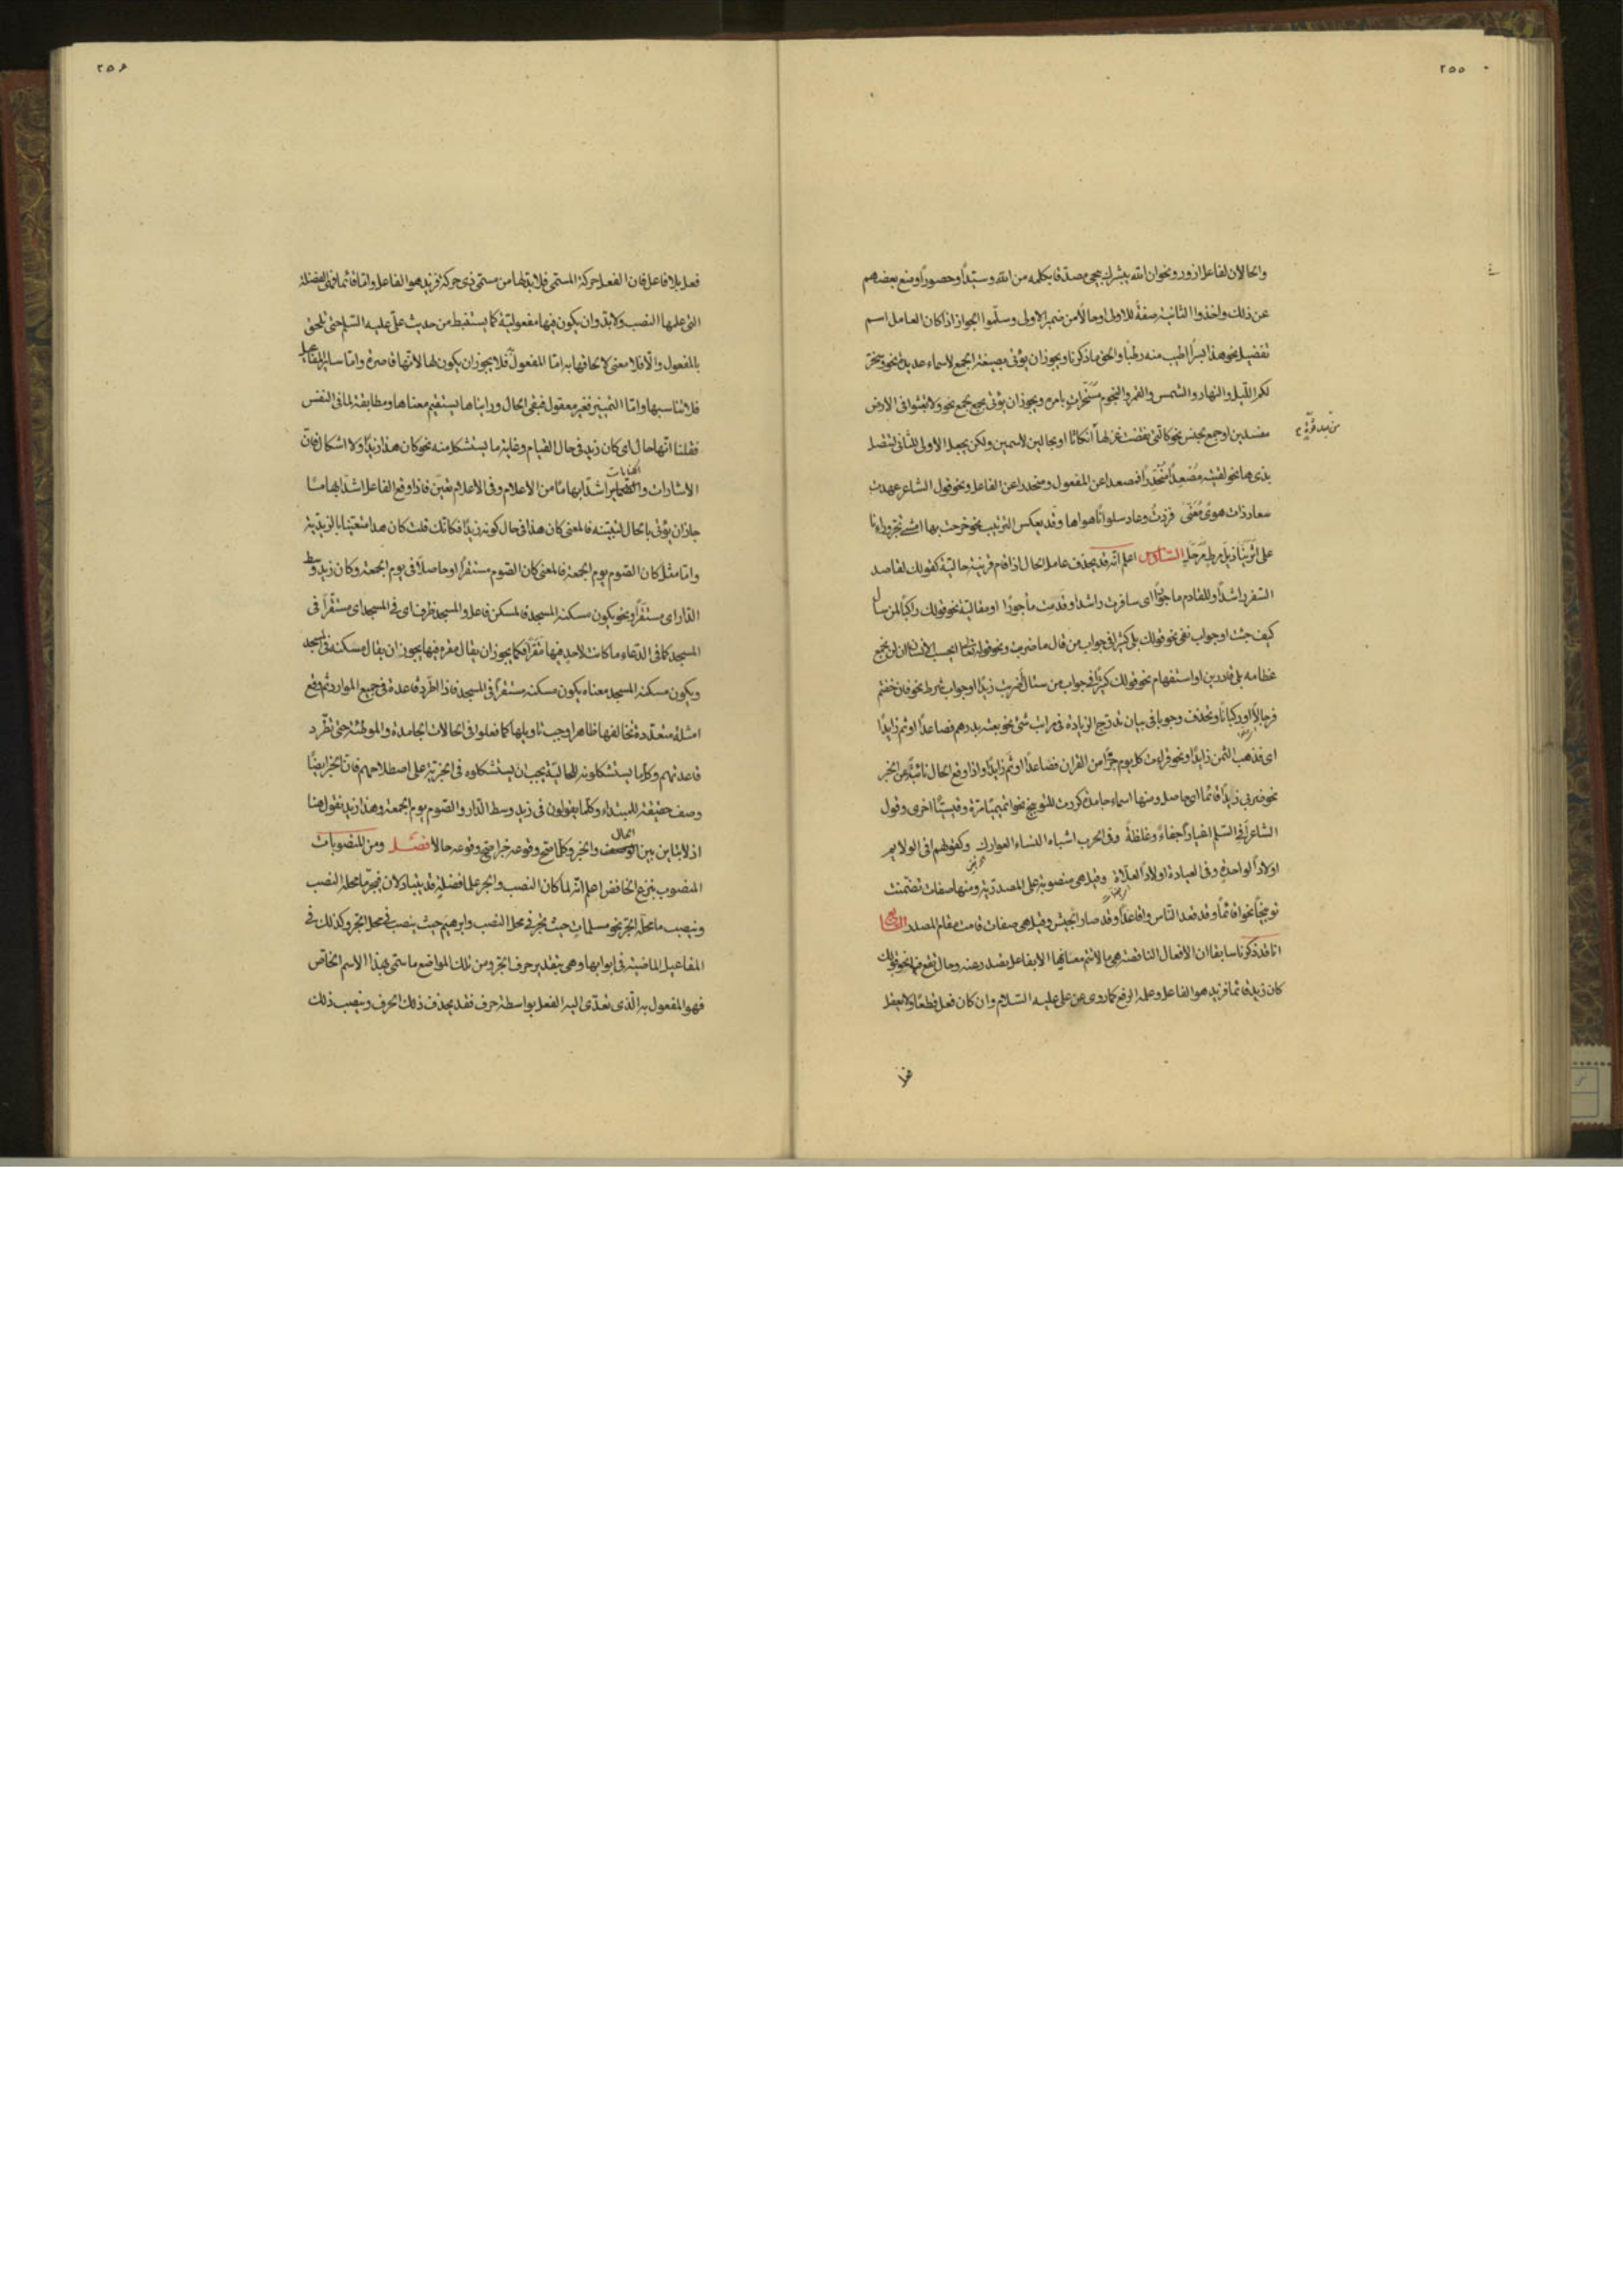 ٢٥٥
والحالان لفاعل ازور ونحو ان الله يبشرك بيحيى مصدقا بكلمه من الله وسيّدًا وحصورًا ومنع بعضهم
عن ذلك واخذوا الثانية صفةً للاولى او حالًا من ضمير الاولى وسلّموا الجواز اذا كان العامل اسم
تفضيل نحو هذا بسرًا اطيب منه رطبًا والحق ما ذكرنا ويجوز ان يؤتى بصيغة الجمع لاسماء عديدة نحو وسخّر
لكم الليل والنهار والشمس والقمر والنجوم مسخّراتٍ بامره ويجوز ان يؤتى بجمع لجمع نحو ولا تعثوا فى الارض
مفسدين او جمع لجنس نحو كالتى نقضت غزلها أنكاثًا او بحالين لاسمين ولكن يجعل الاولى للثانى لتتصل
من بعد قوّةٍ
بذى ها نحو لقيته مُصْعِدًا مُنْحَدِرًا فمصعدا عن المفعول ومنحدرا عن الفاعل ونحو قول الشاعر عهدت
سعاد ذات هوى مُعَنّى فزدتُ وعاد سلوانًا هواها وقد يعكس الترتيب نحو خرجت بها امشى تجرّ وراءنا
على اثرينا ذيل مرط مرحّل السّادس اعلم انّه قد يحذف عامل الحال اذا قام قرينة حالية كقولك لقاصد
السفر راشدًا وللقادم مأجورًا اى سافرت راشدا وقدمت مأجورًا او مقالية نحو قولك راكبًا لمن سأل
كيف جئت او جواب نفى نحو قولك بلى كثيرا فى جواب من قال ما ضربت ونحو قوله تعالى ايحسب الانسان ان لن نجمع
عظامه بلى قادرين او استفهام نحو قولك كثيرًا فى جواب من سئل أضربت زيدًا او جواب شرط نحو فان خفتم
فرجالًا او ركبانًا ويحذف وجوبا فى بيان تدرّج الزيادة فى مراتب شئ نحو بعته بدرهم فصاعدًا او ثم زايدًا
اى فذهب الثمن زايدًا ونحو قرأت كل يوم جزءًا من القران فصاعدًا او ثم زايدًا واذا وقع الحال نائبةً عن الخبر
نحو ضربى زيدًا قائمًا اى حاصل ومنها اسماء جامدة كررت للتوبيخ نحو اتميميّا مرة وقيسيّا اخرى وقول
الشاعر أفى السّلم اعيارًا جفاءً وغلظةً وفى الحرب اشباه النساء العوارك وكقولهم افى الولايم
اولادًا لواحدةٍ وفى العيادة اولادًا لعلّاة وقيل هى منصوبة على المصدرية ومنها صفات تضمّنت
توبيخًا نحو اقائمًا وقد قعد الناس واقاعدًا وقد صار الجيش وقيل هى صفات قامت مقام المصدر السّابع
انا قد ذكرنا سابقا ان الافعال الناقصة هى ما لا تتم معانيها الا بفاعل يصدر عنه وحال تقع فيها نحو قولك
كان زيد قائما فزيد هو الفاعل وعمله الرفع كما روى عن على عليه السّلام وان كان فعل قطعًا ولا يعقل
فعل
٢٥۶
فعل بلا فاعل فان الفعل حركة المسمّى فلا بدّ لها من مسمّى ذى حركة فزيد هو الفاعل وامّا قائما فهى الفضلة
التى عملها النصب ولا بدّ وان يكون فيها مفعوليّة كما يستنبط من حديث علىّ عليه السّلم حتى يلحق
بالمفعول والّا فلا معنى لالحاقها به امّا المفعول به فلا يجوز ان يكون لها لانّها قاصرة وامّا ساير المفاعيل
فلا تناسبها وامّا التمييز فغير معقول فبقى الحال وراينا ها يستقيم معناها ومطابقة لما فى النفس
فقلنا انّها حال اى كان زيد فى حال القيام وغاية ما يستشكل منه نحو كان هذا زيدًا ولا اشكال فانّ
الاشارات والكنايات اشدّ ابهامًا من الاعلام وفى الاعلام تعيّن فاذا وقع الفاعل اشدّ ابهامًا
جاز ان يؤتى بالحال لتبيّنه فالمعنى كان هذا فى حال كونه زيدًا فكانّك قلت كان هذا متعيّنا بالزيديّة
وامّا مثل كان الصّوم يوم الجمعة فالمعنى كان الصّوم مستقرًا او حاصلًا فى يوم الجمعة وكان زيد وسط
الدّار اى مستقرًا ونحو يكون مسكنه المسجد فالمسكن فاعل والمسجد ظرف اى فى المسجد اى مستقرًا فى
المسجد كما فى الدّعاء ما كانت لاحدٍ فيها مَقرًا فكما يجوز ان يقال مقره فيها يجوز ان يقال مسكنه فى المسجد
ويكون مسكنه المسجد معناه يكون مسكنه مستقرًا فى المسجد فاذا اطّرد قاعدة فى جميع الموارد ثم وقع
امثلة متعدّدة تخالفها ظاهرا وجب تاويلها كما فعلوا فى الحالات الجامدة والموطّئة حتى تطّرد
قاعدتهم وكلّما يستشكلونه للحاليّة يجب ان يستشكلوه فى الخبريّة على اصطلاحهم فان الخبر ايضًا
وصف حقيقة للمبتداء وكلّما يقولون فى زيد وسط الدّار والصّوم يوم الجمعة وهذا زيد نقول هنا
اذ لا تباين بين الحال والخبر وكلّما صحّ وقوعه خبرا صحّ وقوعه حالا فصل ومن المنصوبات
المنصوب بنزع الخافض اعلم انّه لمّا كان النصب والجر علما فضلةٍ قد يتبادلان فيجرّ ما محلّه النصب
وينصب ما محلّه الجرّ نحو مسلماتٍ حيث يجرّ فى محل النصب وابرهيم حيث ينصب فى محل الجر وكذلك فى
المفاعيل الماضية فى ابوابها وهى بتقدير حرف الجر ومن تلك المواضع ما سمّى بهذا الاسم الخاصّ
فهو المفعول به الّذى تعدّى اليه الفعل بواسطة حرف فقد يحذف ذلك الحرف وينصب ذلك